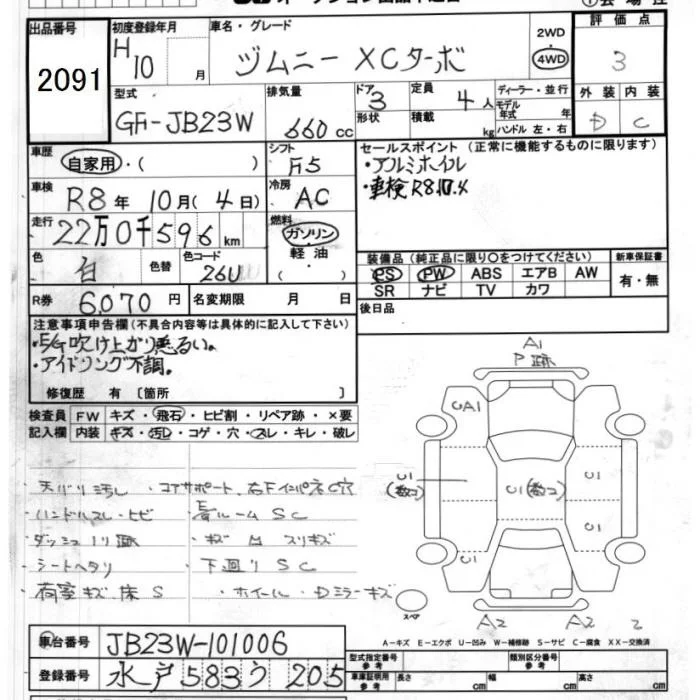 出品番号
2091
初度登録年月
H10 月
車名・グレード
ジムニー XCターボ
2WD
4WD
評価点
3
外装 内装
D C
型式
GF-JB23W
排気量
660 cc
ドア 3
形状
定員 4人
積載 kg
ディーラー・並行
モデル年式 年
ハンドル 左・右
車歴
自家用・( )
シフト
F5
車検
R8年10月(4日)
冷房
AC
走行
22万0千596km
燃料
ガソリン・
軽油・
( )
色
白
色替
色コード
26U
R券
6,070円
名変期限 月 日
セールスポイント (正常に機能するものに限ります)
・アルミホイル
・車検R8.10.4
装備品(純正品に限り〇をつけてください)
PS PW ABS エアB AW
SR ナビ TV カワ
新車保証書
有・無
後日品
注意事項申告欄(不具合内容等は具体的に記入して下さい)
・E/G吹け上がり悪るい。
・アイドリング不調。
修復歴 有〔箇所 〕
検査員記入欄
FW キズ・飛石・ヒビ割・リペア跡・×要
内装 キズ・汚レ・コゲ・穴・スレ・キレ・破レ
天バリ汚し ・コアサポート、右FインパネC穴
ハンドルスレ・ヒビ
ルームSC
シートヘタリ
下廻りSC
荷室キズ 床S
・ホイール・Dミラーキズ
A1
P跡
CA1
C1
C1
C1
C1
C1
A2 A2 2
スペア
A-キズ E-エクボ U-凹み W-補修跡 S-サビ C-腐食 XX-交換済
車台番号
JB23W-101006
登録番号
水戸 583 う 205
型式指定番号
参考
類別区分番号
参考
車庫証明用
参考
長さ cm
幅 cm
高さ cm